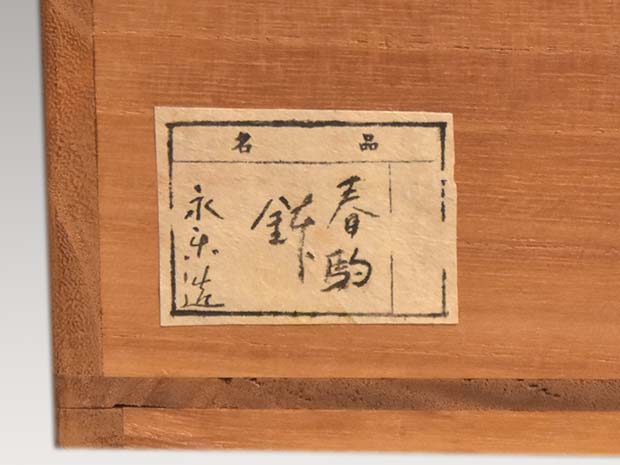 品名
春駒
鉢
永樂造